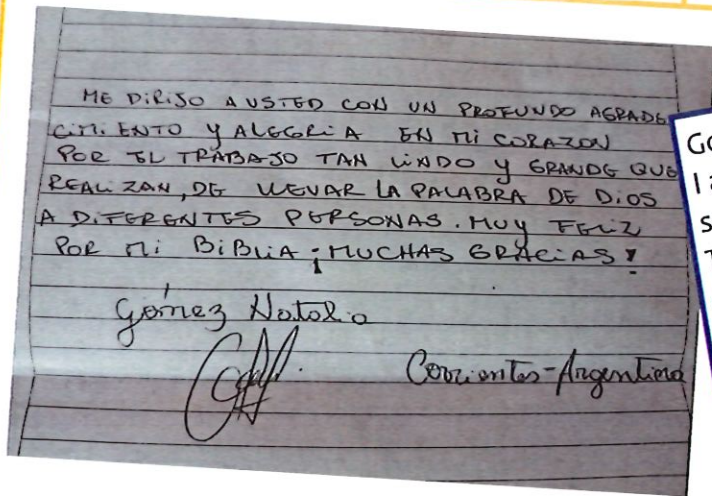 ME DIRIJO A USTED CON UN PROFUNDO AGRADE
CIMIENTO Y ALEGRIA EN MI CORAZON
POR EL TRABAJO TAN LINDO Y GRANDE QUE
REALIZAN, DE LLEVAR LA PALABRA DE DIOS
A DIFERENTES PERSONAS. MUY FELIZ
POR MI BIBLIA ¡MUCHAS GRACIAS!
Gómez Natalio
Corrientes-Argentina